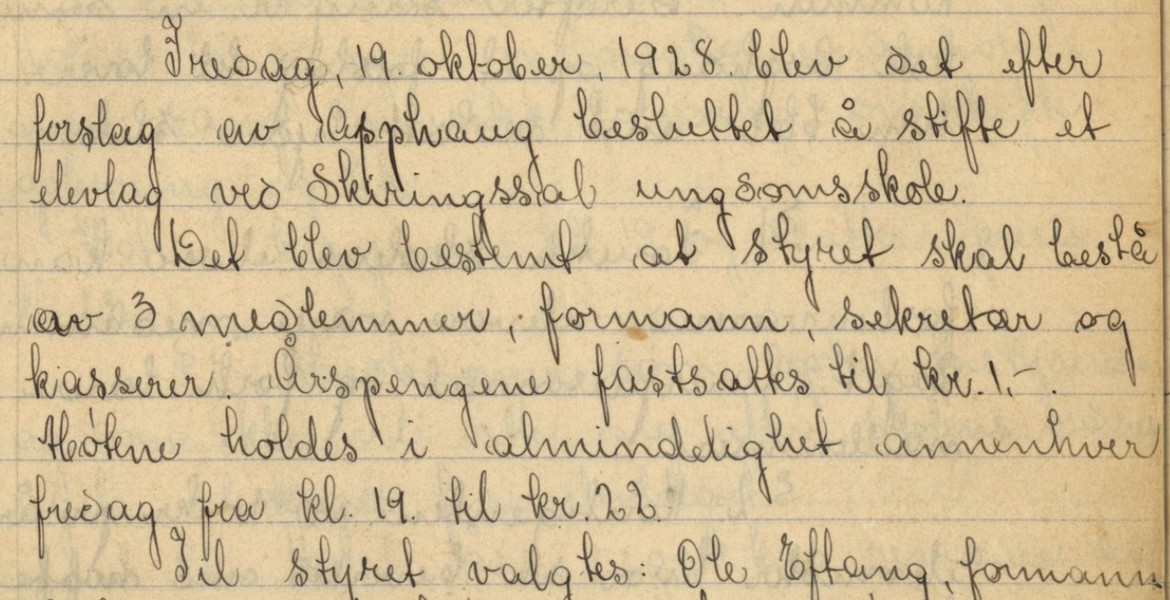 Fredag, 19. oktober, 1928. blev det efter
forslag av Apphaug besluttet å stifte et
elevlag ved Skiringssal ungdomsskole.
Det blev bestemt at styret skal bestå
av 3 medlemmer, formann, sekretær og
kasserer. Årspengene fastsattes til kr. 1.-.
Mótene holdes i almindelighet annenhver
fredag fra kl. 19. til kr. 22.
Til styret valgtes: Ole Eftang, formann